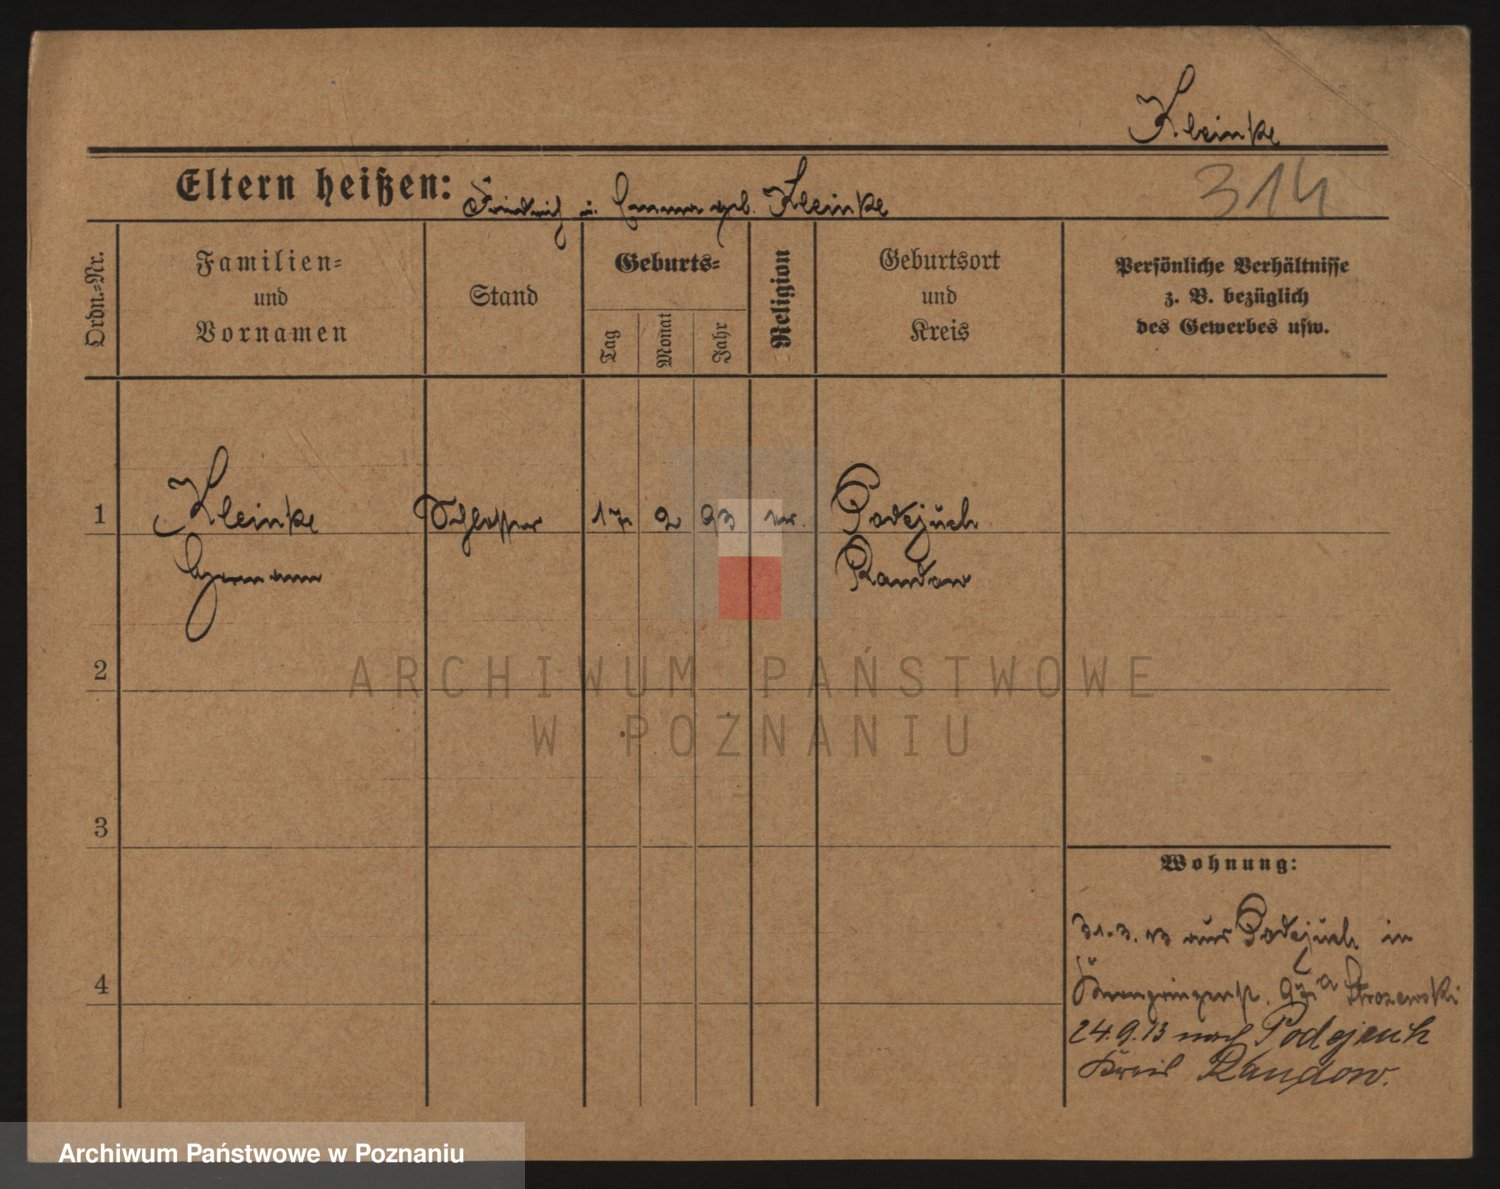 Kleinke
Eltern heißen: Friedrich u. Emma geb. Kleinke
314
Ordn.-Nr.
Familien-
und
Vornamen
Stand
Geburts-
Tag
Monat
Jahr
Religion
Geburtsort
und
Kreis
Persönliche Verhältnisse
z. B. bezüglich
des Gewerbes usw.
1 Kleinke Schlosser 17 2 93 ev. Podejuch
Hermann Randow
2
3
4
Wohnung:
31.3.13 aus Podejuch in
Kronprinzenstr. 97a Strozewski
24.9.13 nach Podejuch
Kreis Randow.
ARCHIWUM PAŃSTWOWE
W POZNANIU
Archiwum Państwowe w Poznaniu